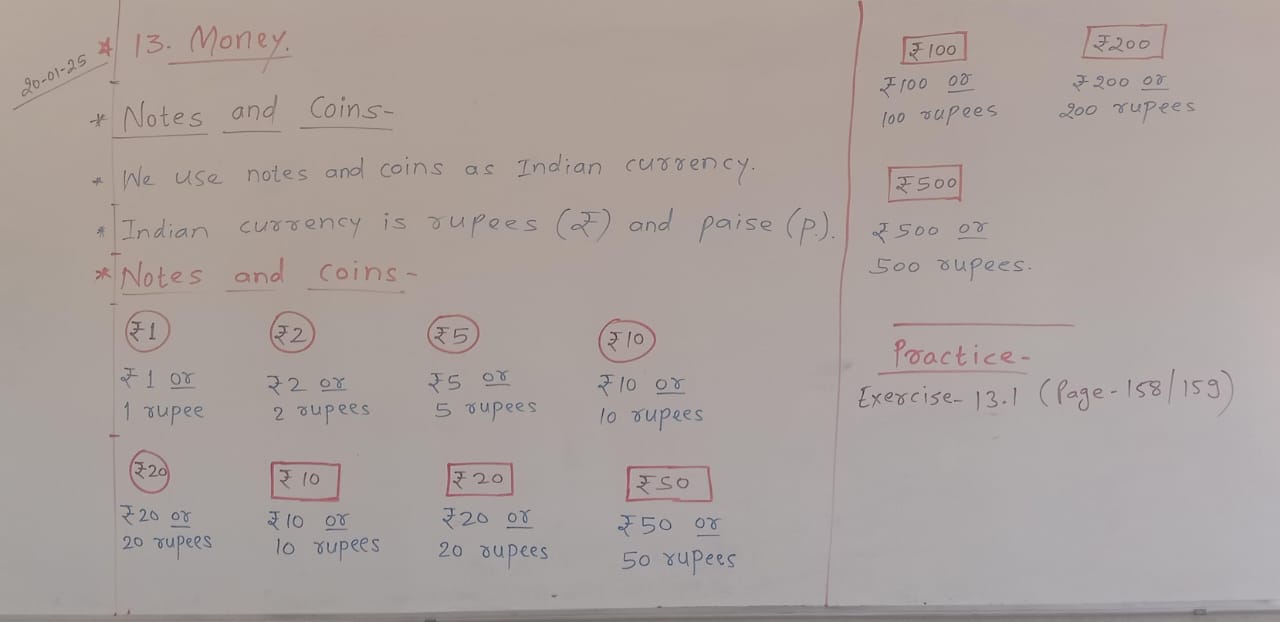 20-01-25
* 13. Money.
* Notes and Coins-
* We use notes and coins as Indian currency.
* Indian currency is rupees (₹) and paise (p.).
* Notes and coins-
₹1 ₹2 ₹5 ₹10
₹1 or ₹2 or ₹5 or ₹10 or
1 rupee 2 rupees 5 rupees 10 rupees
₹20 ₹10 ₹20 ₹50
₹20 or ₹10 or ₹20 or ₹50 or
20 rupees 10 rupees 20 rupees 50 rupees
₹100 ₹200
₹100 or ₹200 or
100 rupees 200 rupees
₹500
₹500 or
500 rupees.
Practice-
Exercise- 13.1 (Page-158/159)